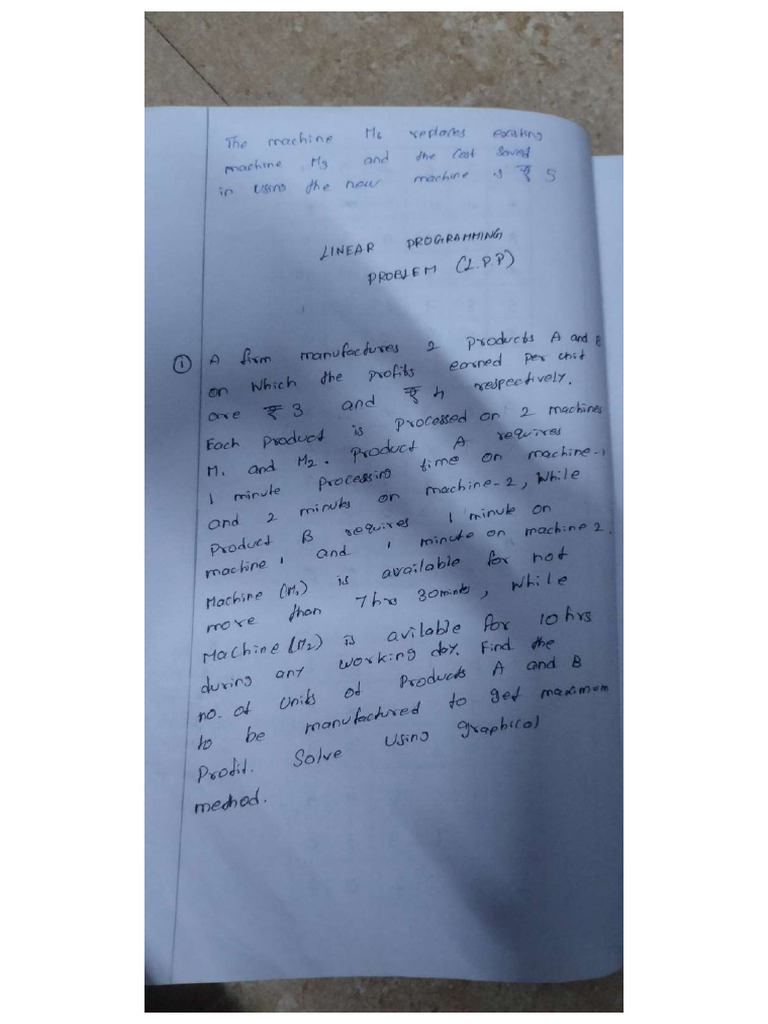 The machine M6 replaces existing
machine M3 and the cost saved
in using the new machine is ₹ 5
LINEAR PROGRAMMING
PROBLEM (L.P.P)
① A firm manufactures 2 products A and B
on which the profits earned per unit
are ₹ 3 and ₹ 4 respectively.
Each product is processed on 2 machines
M1 and M2. Product A requires
1 minute processing time on machine-1
and 2 minutes on machine-2, while
Product B requires 1 minute on
machine 1 and 1 minute on machine 2.
Machine (M1) is available for not
more than 7 hrs 30 mints, while
Machine (M2) is avilable for 10 hrs
during any working day. Find the
no. of units of Products A and B
to be manufactured to get maximum
Profit. Solve using graphical
method.